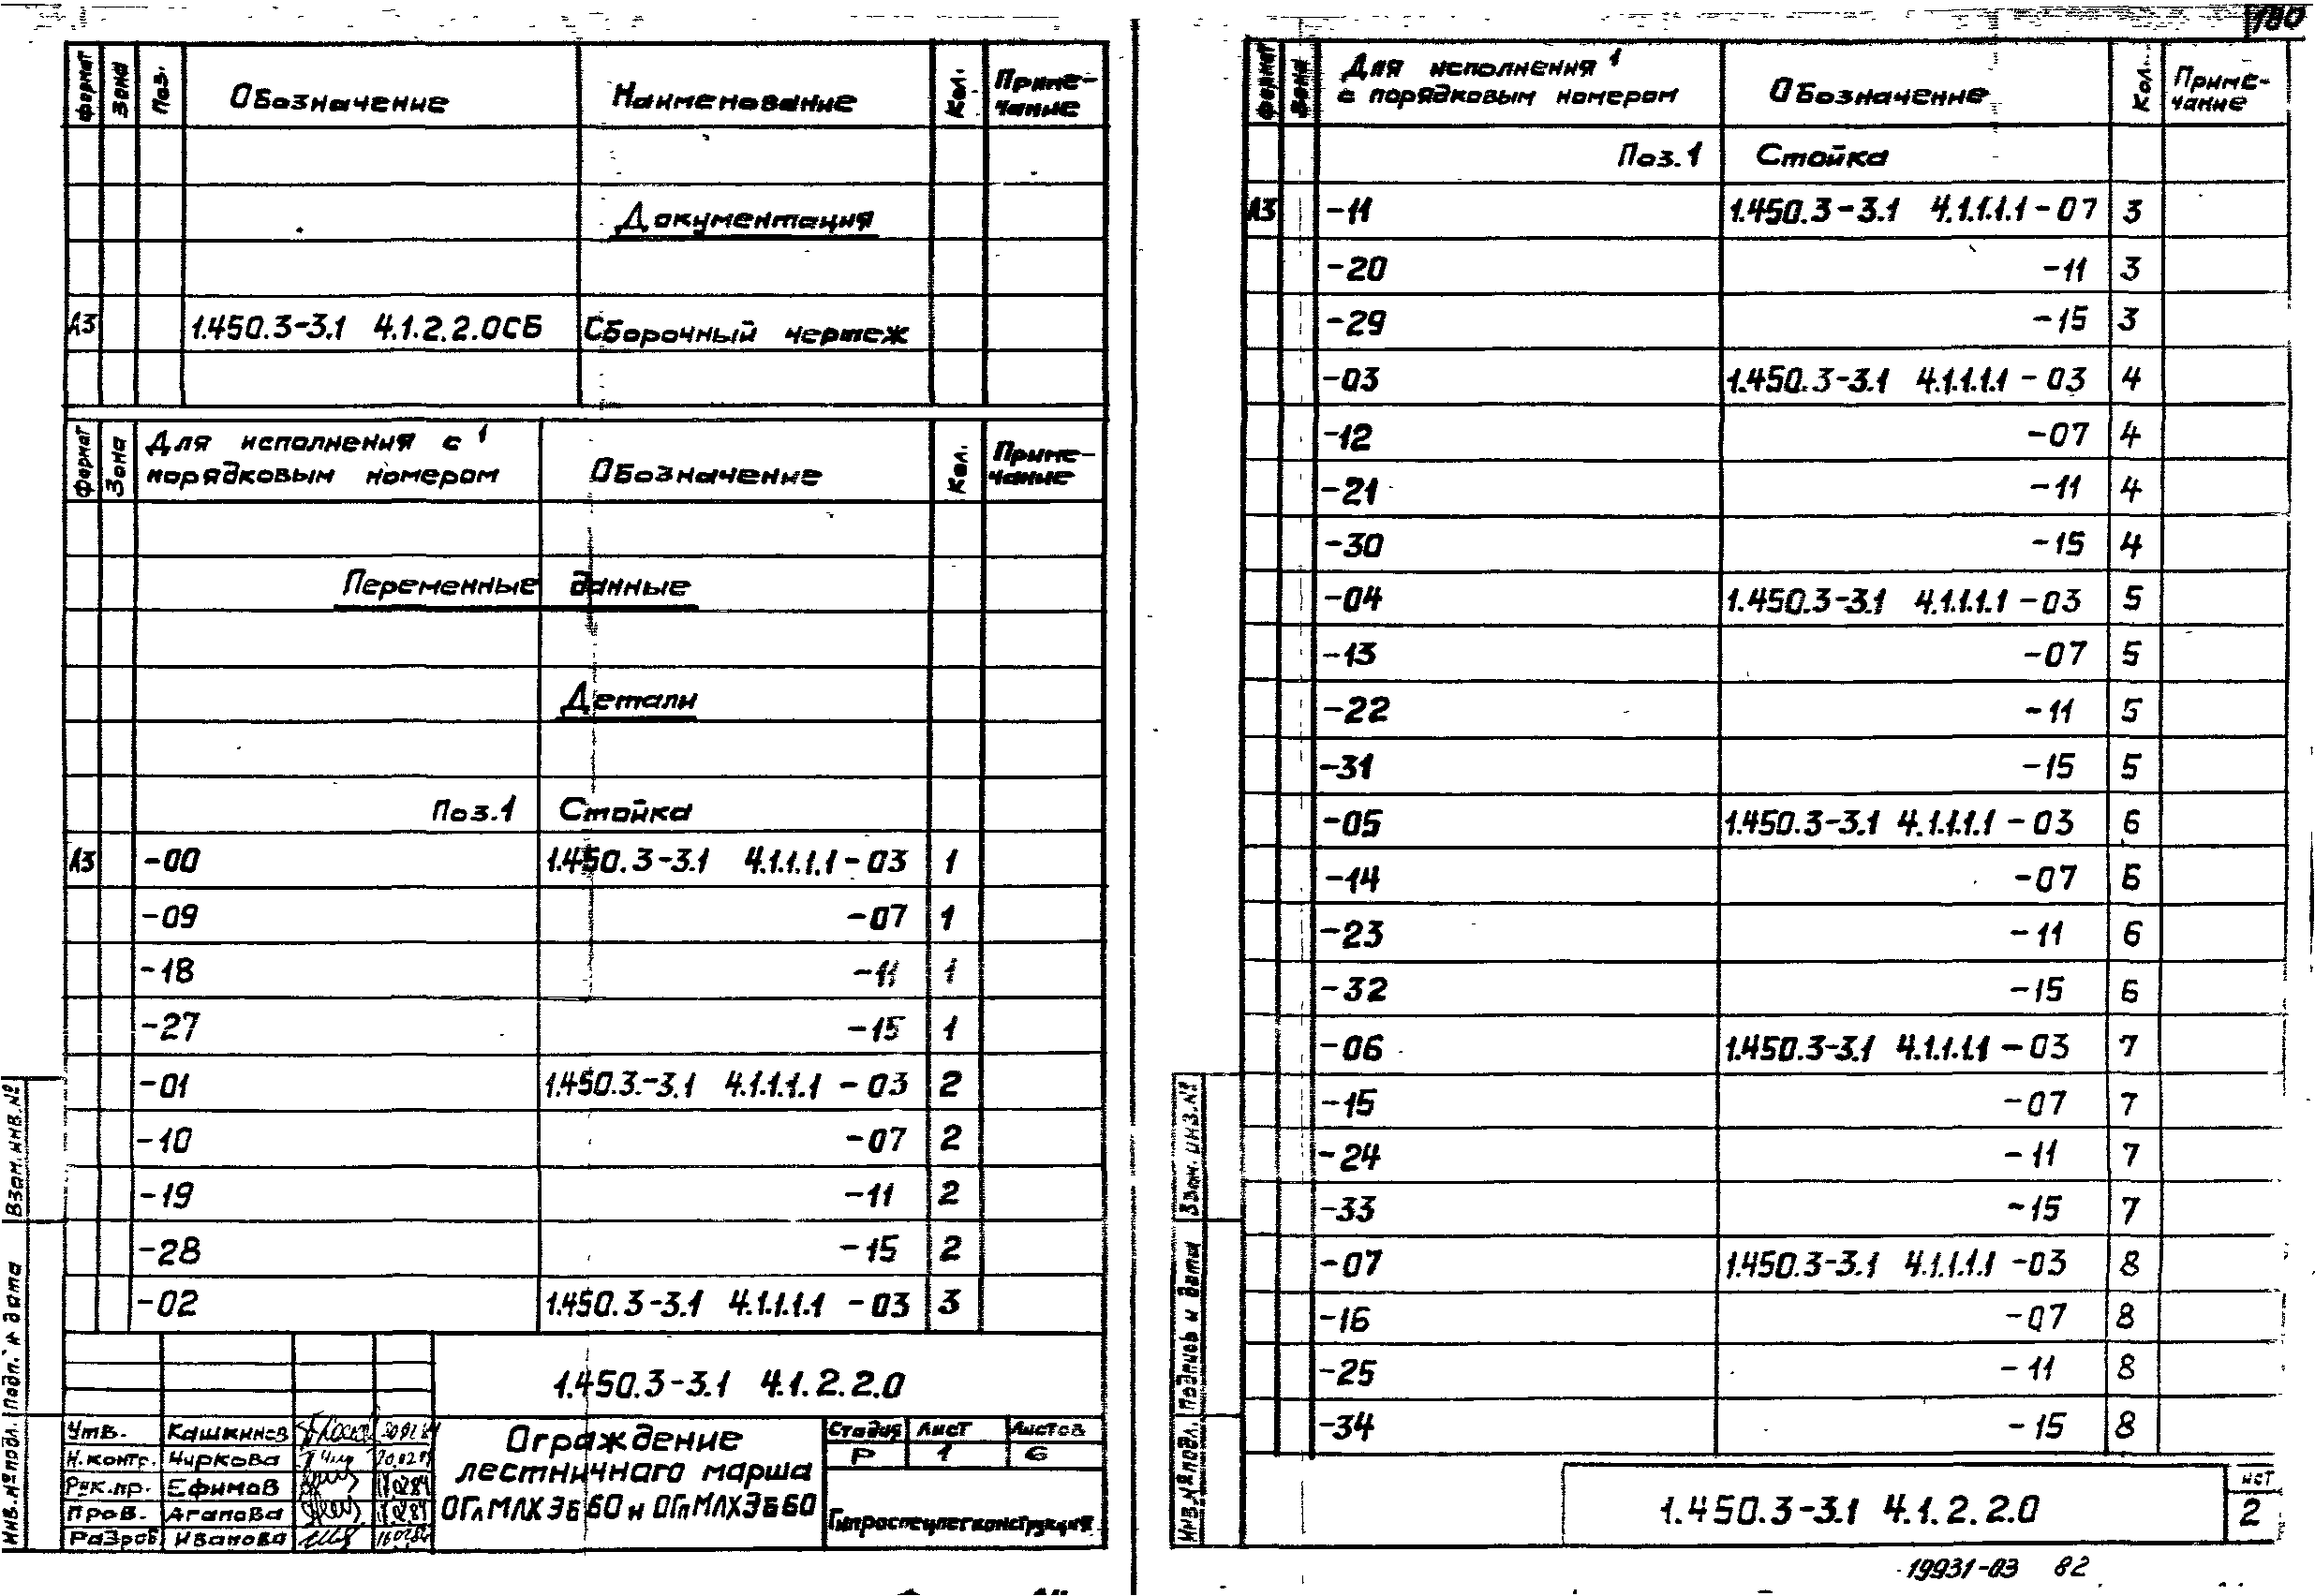 180
Формат Зона Поз. Обозначение Наименование Кол. Приме-
чание
Документация
А3 1.450.3-3.1 4.1.2.2.0СБ Сборочный чертеж
Формат Зона Для исполнения с 1
порядковым номером Обозначение Кол. Приме-
чание
Переменные данные
Детали
Поз.1 Стойка
А3 -00 1.450.3-3.1 4.1.1.1.1-03 1
-09 -07 1
-18 -11 1
-27 -15 1
-01 1.450.3-3.1 4.1.1.1.1-03 2
-10 -07 2
-19 -11 2
-28 -15 2
-02 1.450.3-3.1 4.1.1.1.1-03 3
1.450.3-3.1 4.1.2.2.0
Утв. Кашкинов
Н.контр. Чиркова
Рук.пр. Ефимов
Пров. Агапова
Разроб Иванова
Ограждение
лестничного марша
ОГлМЛХЭБ60 и ОГпМЛХЭБ60
Стадия Лист Листов
Р 1 6
Гипроспецлегконструкция
Инв.№подл. Подп. и дата Взам.инв.№
Формат Зона Для исполнения 1
с порядковым номером Обозначение Кол. Приме-
чание
Поз.1 Стойка
А3 -11 1.450.3-3.1 4.1.1.1.1-07 3
-20 -11 3
-29 -15 3
-03 1.450.3-3.1 4.1.1.1.1-03 4
-12 -07 4
-21 -11 4
-30 -15 4
-04 1.450.3-3.1 4.1.1.1.1-03 5
-13 -07 5
-22 -11 5
-31 -15 5
-05 1.450.3-3.1 4.1.1.1.1-03 6
-14 -07 6
-23 -11 6
-32 -15 6
-06 1.450.3-3.1 4.1.1.1.1-03 7
-15 -07 7
-24 -11 7
-33 -15 7
-07 1.450.3-3.1 4.1.1.1.1-03 8
-16 -07 8
-25 -11 8
-34 -15 8
1.450.3-3.1 4.1.2.2.0
2
Инв.№подл. Подпись и дата Взам.инв.№
19931-03 82